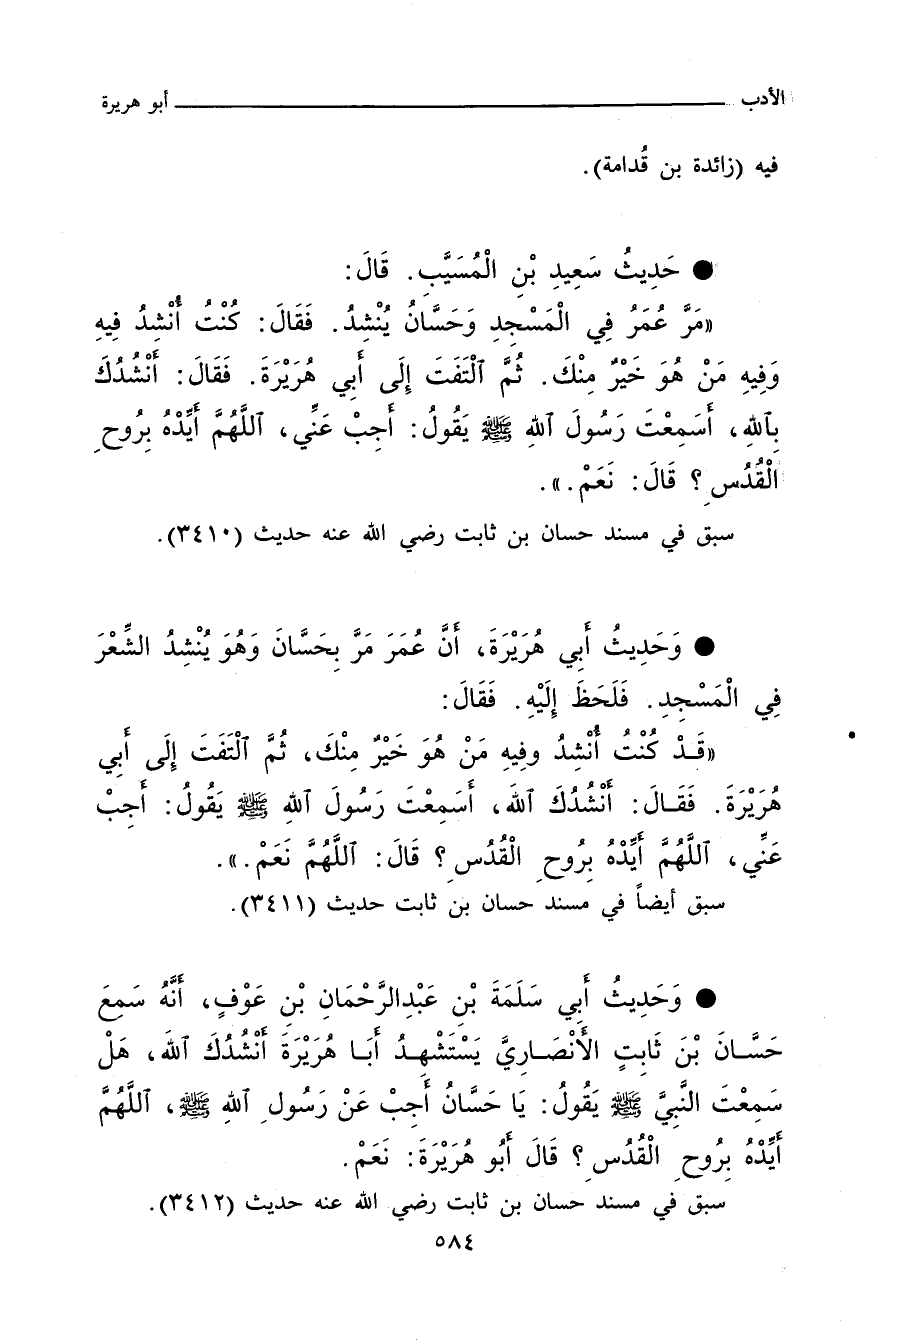 الأدب ــــــــــــــــــــ أبو هريرة
فيه (زائدة بن قُدامة).
● حَدِيثُ سَعِيدِ بْنِ الْمُسَيَّبِ. قَالَ:
«مَرَّ عُمَرُ فِي الْمَسْجِدِ وَحَسَّانُ يُنْشِدُ. فَقَالَ: كُنْتُ أُنْشِدُ فِيهِ
وَفِيهِ مَنْ هُوَ خَيْرٌ مِنْكَ. ثُمَّ ٱلْتَفَتَ إِلَى أَبِي هُرَيْرَةَ. فَقَالَ: أَنْشُدُكَ
بِٱللهِ، أَسَمِعْتَ رَسُولَ ٱللهِ ﷺ يَقُولُ: أَجِبْ عَنِّي، ٱللَّهُمَّ أَيِّدْهُ بِرُوحِ
الْقُدُسِ؟ قَالَ: نَعَمْ.».
سبق في مسند حسان بن ثابت رضي الله عنه حديث (٣٤١٠).
● وَحَدِيثُ أَبِي هُرَيْرَةَ، أَنَّ عُمَرَ مَرَّ بِحَسَّانَ وَهُوَ يُنْشِدُ الشِّعْرَ
فِي الْمَسْجِدِ. فَلَحَظَ إِلَيْهِ. فَقَالَ:
«قَدْ كُنْتُ أُنْشِدُ وفِيهِ مَنْ هُوَ خَيْرٌ مِنْكَ، ثُمَّ ٱلْتَفَتَ إِلَى أَبِي
هُرَيْرَةَ. فَقَالَ: أَنْشُدُكَ ٱللهَ، أَسَمِعْتَ رَسُولَ ٱللهِ ﷺ يَقُولُ: أَجِبْ
عَنِّي، ٱللَّهُمَّ أَيِّدْهُ بِرُوحِ الْقُدُسِ؟ قَالَ: ٱللَّهُمَّ نَعَمْ.».
سبق أيضاً في مسند حسان بن ثابت حديث (٣٤١١).
● وَحَدِيثُ أَبِي سَلَمَةَ بْنِ عَبْدِالرَّحْمَانِ بْنِ عَوْفٍ، أَنَّهُ سَمِعَ
حَسَّانَ بْنَ ثَابِتٍ الأَنْصَارِيَّ يَسْتَشْهِدُ أَبَا هُرَيْرَةَ أَنْشُدُكَ ٱللهَ، هَلْ
سَمِعْتَ النَّبِيَّ ﷺ يَقُولُ: يَا حَسَّانُ أَجِبْ عَنْ رَسُولِ ٱللهِ ﷺ، ٱللَّهُمَّ
أَيِّدْهُ بِرُوحِ الْقُدُسِ؟ قَالَ أَبُو هُرَيْرَةَ: نَعَمْ.
سبق في مسند حسان بن ثابت رضي الله عنه حديث (٣٤١٢).
٥٨٤